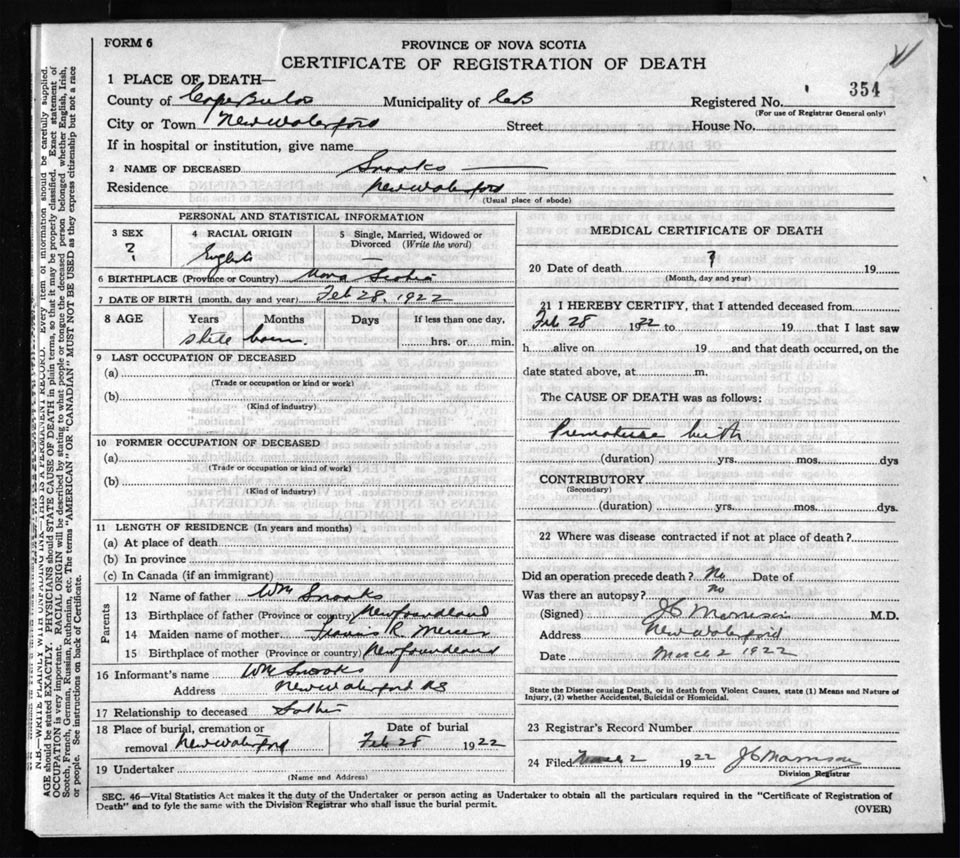 FORM 6
PROVINCE OF NOVA SCOTIA
CERTIFICATE OF REGISTRATION OF DEATH
354
1 PLACE OF DEATH—
County of Cape Breton Municipality of CB Registered No.
(For use of Registrar General only)
City or Town New Waterford Street House No.
If in hospital or institution, give name
2 NAME OF DECEASED Snooks
Residence New Waterford
(Usual place of abode)
PERSONAL AND STATISTICAL INFORMATION
3 SEX
?
4 RACIAL ORIGIN
English
5 Single, Married, Widowed or
Divorced (Write the word)
—
6 BIRTHPLACE (Province or Country) Nova Scotia
7 DATE OF BIRTH (month, day and year) Feb 28, 1922
8 AGE Years Months Days If less than one day,
stile born. hrs. or min.
9 LAST OCCUPATION OF DECEASED
(a)
(Trade or occupation or kind or work)
(b)
(Kind of industry)
10 FORMER OCCUPATION OF DECEASED
(a)
(Trade or occupation or kind or work)
(b)
(Kind of industry)
11 LENGTH OF RESIDENCE (In years and months)
(a) At place of death
(b) In province
(c) In Canada (if an immigrant)
Parents
12 Name of father Wm Snooks
13 Birthplace of father (Province or country) Newfoundland
14 Maiden name of mother Francis R. Mercer
15 Birthplace of mother (Province or country) Newfoundland
16 Informant's name Wm Snooks
Address New Waterford NS
17 Relationship to deceased Father
18 Place of burial, cremation or
removal New Waterford
Date of burial
Feb 28 1922
19 Undertaker
(Name and Address)
MEDICAL CERTIFICATE OF DEATH
20 Date of death ? 19
(Month, day and year)
21 I HEREBY CERTIFY, that I attended deceased from
Feb 28 1922 to 19 that I last saw
h alive on 19 and that death occurred, on the
date stated above, at m.
The CAUSE OF DEATH was as follows:
Premature birth
(duration) yrs. mos. dys
CONTRIBUTORY
(Secondary)
(duration) yrs. mos. dys.
22 Where was disease contracted if not at place of death?
Did an operation precede death? No Date of
Was there an autopsy? No
(Signed) J C Morrison M.D.
Address New Waterford
Date March 2 1922
State the Disease causing Death, or in death from Violent Causes, state (1) Means and Nature of
Injury, (2) whether Accidental, Suicidal or Homicidal.
23 Registrar's Record Number
24 Filed March 2 1922 J C Morrison
Division Registrar
SEC. 46—Vital Statistics Act makes it the duty of the Undertaker or person acting as Undertaker to obtain all the particulars required in the "Certificate of Registration of
Death" and to fyle the same with the Division Registrar who shall issue the burial permit.
(OVER)
N.B.—WRITE PLAINLY WITH UNFADING INK—THIS IS A PERMANENT RECORD. Every item of information should be carefully supplied.
AGE should be stated EXACTLY. PHYSICIANS should STATE CAUSE OF DEATH in plain terms, so that it may be properly classified. Exact statement of
OCCUPATION is very important. RACIAL ORIGIN will be described by stating to what people or tongue the deceased person belonged whether English, Irish,
Scotch, French, German, Russian, Ruthenian, etc. The terms "AMERICAN" OR "CANADIAN" MUST NOT BE USED as they express citizenship but not a race
or people. See instructions on back of Certificate.